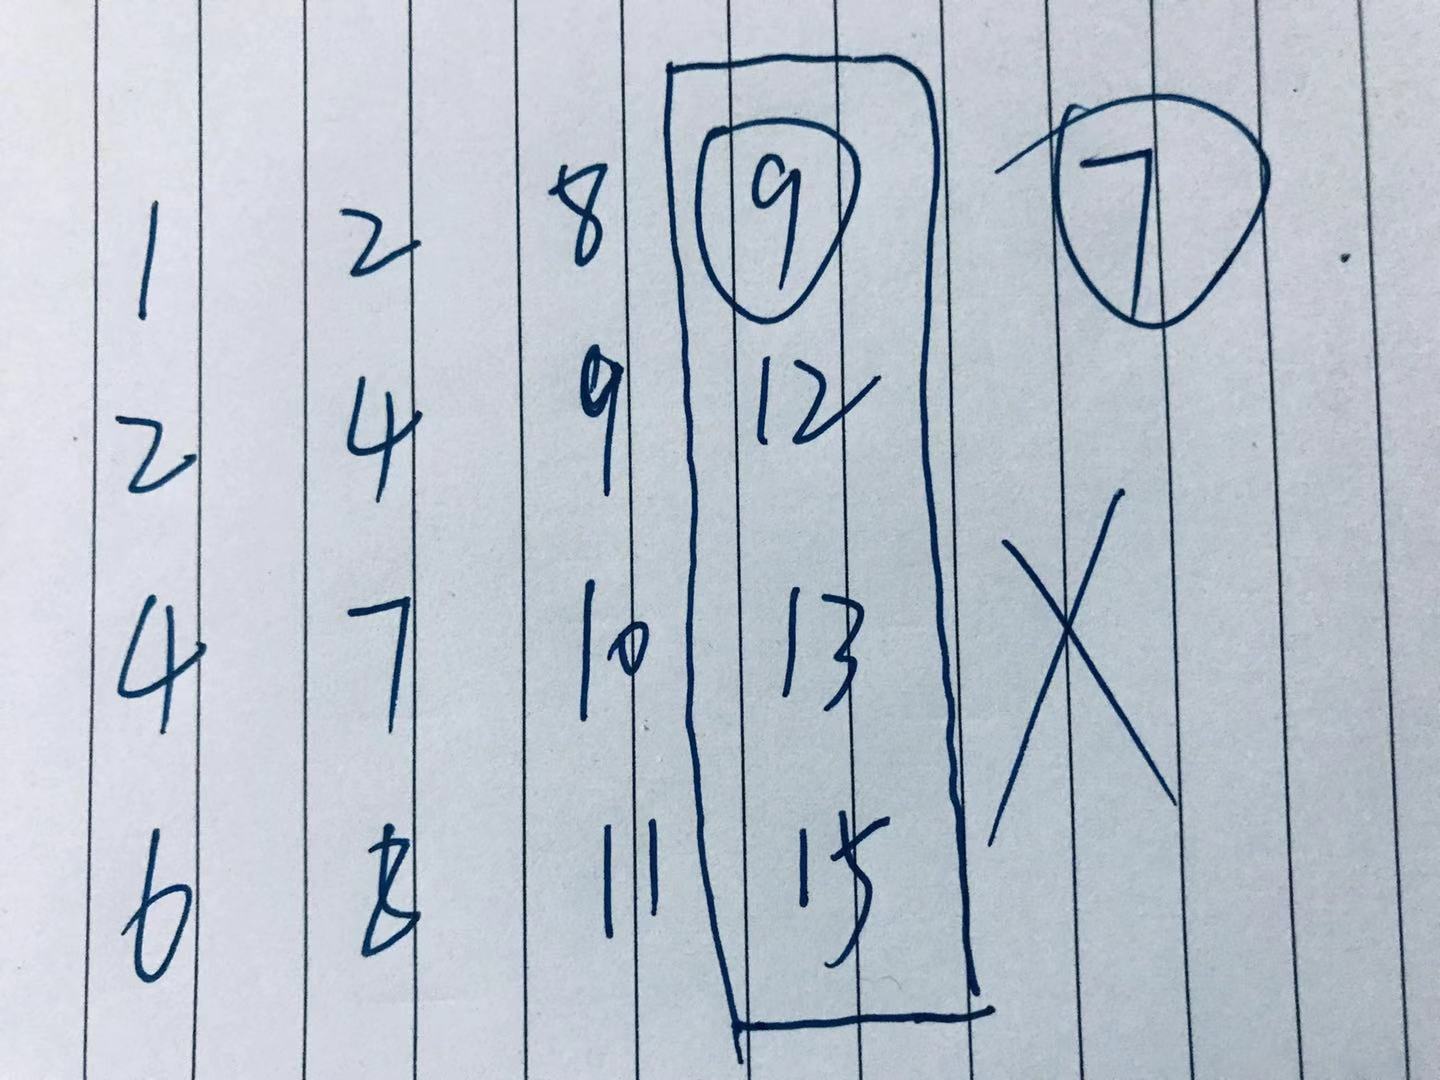 1 2 8 9 7
2 4 9 12
4 7 10 13 X
6 8 11 15